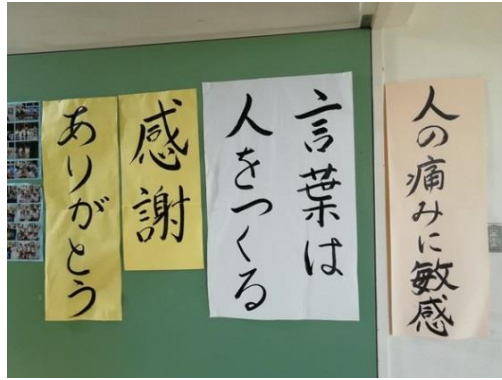 人の痛みに敏感
言葉は
人をつくる
感謝
ありがとう